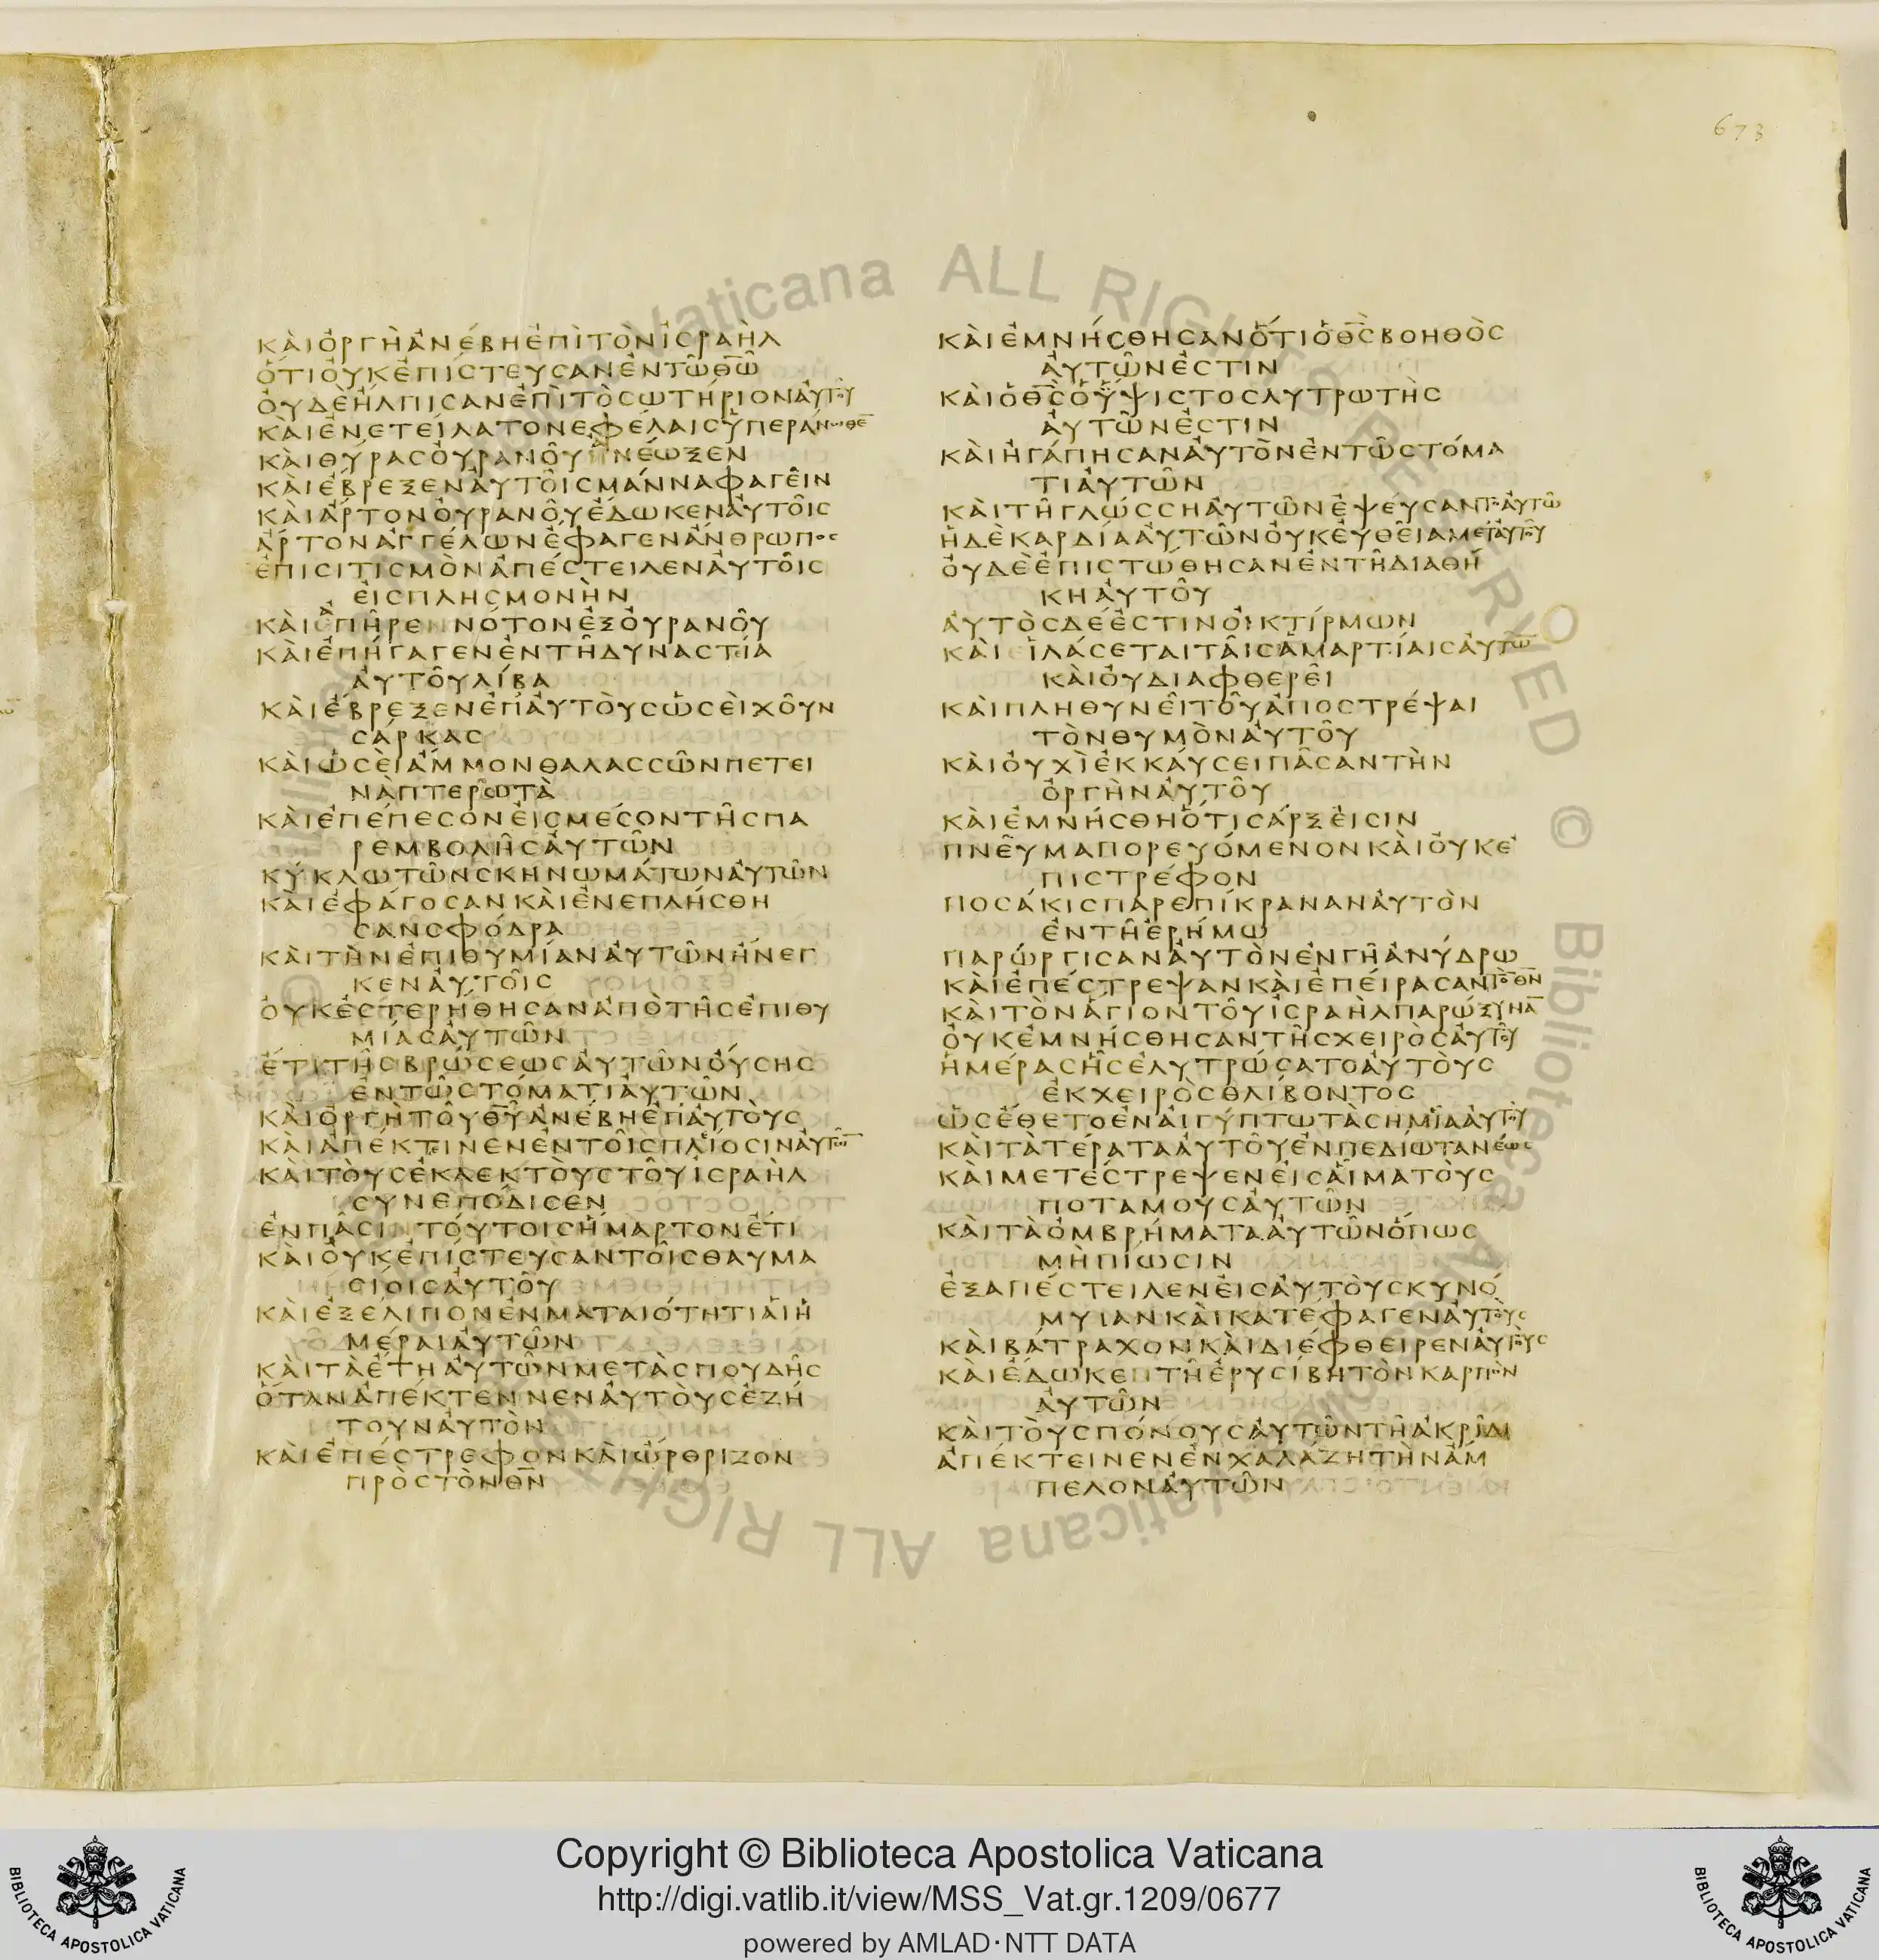 673
ΚΑΙΟΡΓΗΑΝΕΒΗΕΠΙΤΟΝΙСΡΑΗΛ
ΟΤΙΟΥΚΕΠΙСΤΕΥСΑΝΕΝΤΩΘΩ
ΟΥΔΕΗΛΠΙСΑΝΕΠΙΤΟСΩΤΗΡΙΟΝΑΥΤΟΥ
ΚΑΙΕΝΕΤΕΙΛΑΤΟΝΕΦΕΛΑΙСΥΠΕΡΑΝΩΘΕ
ΚΑΙΘΥΡΑСΟΥΡΑΝΟΥΗΝΕΩΞΕΝ
ΚΑΙΕΒΡΕΞΕΝΑΥΤΟΙСΜΑΝΝΑΦΑΓΕΙΝ
ΚΑΙΑΡΤΟΝΟΥΡΑΝΟΥΕΔΩΚΕΝΑΥΤΟΙС
ΑΡΤΟΝΑΓΓΕΛΩΝΕΦΑΓΕΝΑΝΘΡΩΠΟС
ΕΠΙСΙΤΙСΜΟΝΑΠΕСΤΕΙΛΕΝΑΥΤΟΙС
ΕΙСΠΛΗСΜΟΝΗΝ
ΚΑΙΑΠΗΡΕΝΝΟΤΟΝΕΞΟΥΡΑΝΟΥ
ΚΑΙΕΠΗΓΑΓΕΝΕΝΤΗΔΥΝΑСΤΙΑ
ΑΥΤΟΥΛΙΒΑ
ΚΑΙΕΒΡΕΞΕΝΕΠΑΥΤΟΥСΩСΕΙΧΟΥΝ
СΑΡΚΑС
ΚΑΙΩСΕΙΑΜΜΟΝΘΑΛΑССΩΝΠΕΤΕΙ
ΝΑΠΤΕΡΩΤΑ
ΚΑΙΕΠΕΠΕСΟΝΕΙСΜΕСΟΝΤΗСΠΑ
ΡΕΜΒΟΛΗСΑΥΤΩΝ
ΚΥΚΛΩΤΩΝСΚΗΝΩΜΑΤΩΝΑΥΤΩΝ
ΚΑΙΕΦΑΓΟСΑΝΚΑΙΕΝΕΠΛΗСΘΗ
СΑΝСΦΟΔΡΑ
ΚΑΙΤΗΝΕΠΙΘΥΜΙΑΝΑΥΤΩΝΗΝΕΓ
ΚΕΝΑΥΤΟΙС
ΟΥΚΕСΤΕΡΗΘΗСΑΝΑΠΟΤΗСΕΠΙΘΥ
ΜΙΑСΑΥΤΩΝ
ΕΤΙΤΗСΒΡΩСΕΩСΑΥΤΩΝΟΥСΗС
ΕΝΤΩСΤΟΜΑΤΙΑΥΤΩΝ
ΚΑΙΟΡΓΗΤΟΥΘΥΑΝΕΒΗΕΠΑΥΤΟΥС
ΚΑΙΑΠΕΚΤΕΙΝΕΝΕΝΤΟΙСΠΛΙΟСΙΝΑΥΤΩΝ
ΚΑΙΤΟΥСΕΚΛΕΚΤΟΥСΤΟΥΙСΡΑΗΛ
СΥΝΕΠΟΔΙСΕΝ
ΕΝΠΑСΙΝΤΟΥΤΟΙСΗΜΑΡΤΟΝΕΤΙ
ΚΑΙΟΥΚΕΠΙСΤΕΥСΑΝΤΟΙСΘΑΥΜΑ
СΙΟΙСΑΥΤΟΥ
ΚΑΙΕΞΕΛΙΠΟΝΕΝΜΑΤΑΙΟΤΗΤΙΑΙΗ
ΜΕΡΑΙΑΥΤΩΝ
ΚΑΙΤΑΕΤΗΑΥΤΩΝΜΕΤΑСΠΟΥΔΗС
ΟΤΑΝΑΠΕΚΤΕΝΝΕΝΑΥΤΟΥСΕΖΗ
ΤΟΥΝΑΥΤΟΝ
ΚΑΙΕΠΕСΤΡΕΦΟΝΚΑΙΩΡΘΡΙΖΟΝ
ΠΡΟСΤΟΝΘΝ
ΚΑΙΕΜΝΗСΘΗСΑΝΟΤΙΟΘСΒΟΗΘΟС
ΑΥΤΩΝΕСΤΙΝ
ΚΑΙΟΘСΟΥΨΙСΤΟСΛΥΤΡΩΤΗС
ΑΥΤΩΝΕСΤΙΝ
ΚΑΙΗΓΑΠΗСΑΝΑΥΤΟΝΕΝΤΩСΤΟΜΑ
ΤΙΑΥΤΩΝ
ΚΑΙΤΗΓΛΩССΗΑΥΤΩΝΕΨΕΥСΑΝΤΟΑΥΤΩ
ΗΔΕΚΑΡΔΙΑΑΥΤΩΝΟΥΚΕΥΘΕΙΑΜΕΤΑΥΤΟΥ
ΟΥΔΕΕΠΙСΤΩΘΗСΑΝΕΝΤΗΔΙΑΘΗ
ΚΗΑΥΤΟΥ
ΑΥΤΟСΔΕΕСΤΙΝΟΙΚΤΙΡΜΩΝ
ΚΑΙΕΙΛΑСΕΤΑΙΤΑΙСΑΜΑΡΤΙΑΙСΑΥΤΩ
ΚΑΙΟΥΔΙΑΦΘΕΡΕΙ
ΚΑΙΠΛΗΘΥΝΕΙΤΟΥΑΠΟСΤΡΕΨΑΙ
ΤΟΝΘΥΜΟΝΑΥΤΟΥ
ΚΑΙΟΥΧΙΕΚΚΑΥСΕΙΠΑСΑΝΤΗΝ
ΟΡΓΗΝΑΥΤΟΥ
ΚΑΙΕΜΝΗСΘΗΟΤΙСΑΡΞΕΙСΙΝ
ΠΝΕΥΜΑΠΟΡΕΥΟΜΕΝΟΝΚΑΙΟΥΚΕ
ΠΙСΤΡΕΦΟΝ
ΠΟСΑΚΙСΠΑΡΕΠΙΚΡΑΝΑΝΑΥΤΟΝ
ΕΝΤΗΕΡΗΜΩ
ΠΑΡΩΡΓΙСΑΝΑΥΤΟΝΕΝΓΗΑΝΥΔΡΩ
ΚΑΙΕΠΕСΤΡΕΨΑΝΚΑΙΕΠΕΙΡΑСΑΝΤΟΝΘΝ
ΚΑΙΤΟΝΑΓΙΟΝΤΟΥΙСΡΑΗΛΠΑΡΩΞΥΝΑ
ΟΥΚΕΜΝΗСΘΗСΑΝΤΗСΧΕΙΡΟСΑΥΤΟΥ
ΗΜΕΡΑСΗСΕΛΥΤΡΩСΑΤΟΑΥΤΟΥС
ΕΚΧΕΙΡΟСΘΛΙΒΟΝΤΟС
ΩСΕΘΕΤΟΕΝΑΙΓΥΠΤΩΤΑСΗΜΙΑΑΥΤΟΥ
ΚΑΙΤΑΤΕΡΑΤΑΑΥΤΟΥΕΝΠΕΔΙΩΤΑΝΕΩС
ΚΑΙΜΕΤΕСΤΡΕΨΕΝΕΙСΑΙΜΑΤΟΥС
ΠΟΤΑΜΟΥСΑΥΤΩΝ
ΚΑΙΤΑΟΜΒΡΗΜΑΤΑΑΥΤΩΝΟΠΩС
ΜΗΠΙΩСΙΝ
ΕΞΑΠΕСΤΕΙΛΕΝΕΙСΑΥΤΟΥСΚΥΝΟ
ΜΥΙΑΝΚΑΙΚΑΤΕΦΑΓΕΝΑΥΤΟΥС
ΚΑΙΒΑΤΡΑΧΟΝΚΑΙΔΙΕΦΘΕΙΡΕΝΑΥΤΟΥС
ΚΑΙΕΔΩΚΕΝΤΗΕΡΥСΙΒΗΤΟΝΚΑΡΠΟΝ
ΑΥΤΩΝ
ΚΑΙΤΟΥСΠΟΝΟΥСΑΥΤΩΝΤΗΑΚΡΙΔΙ
ΑΠΕΚΤΕΙΝΕΝΕΝΧΑΛΑΖΗΤΗΝΑΜ
ΠΕΛΟΝΑΥΤΩΝ
Copyright © Biblioteca Apostolica Vaticana
http://digi.vatlib.it/view/MSS_Vat.gr.1209/0677
powered by AMLAD·NTT DATA
BIBLIOTECA APOSTOLICA VATICANA
BIBLIOTECA APOSTOLICA VATICANA